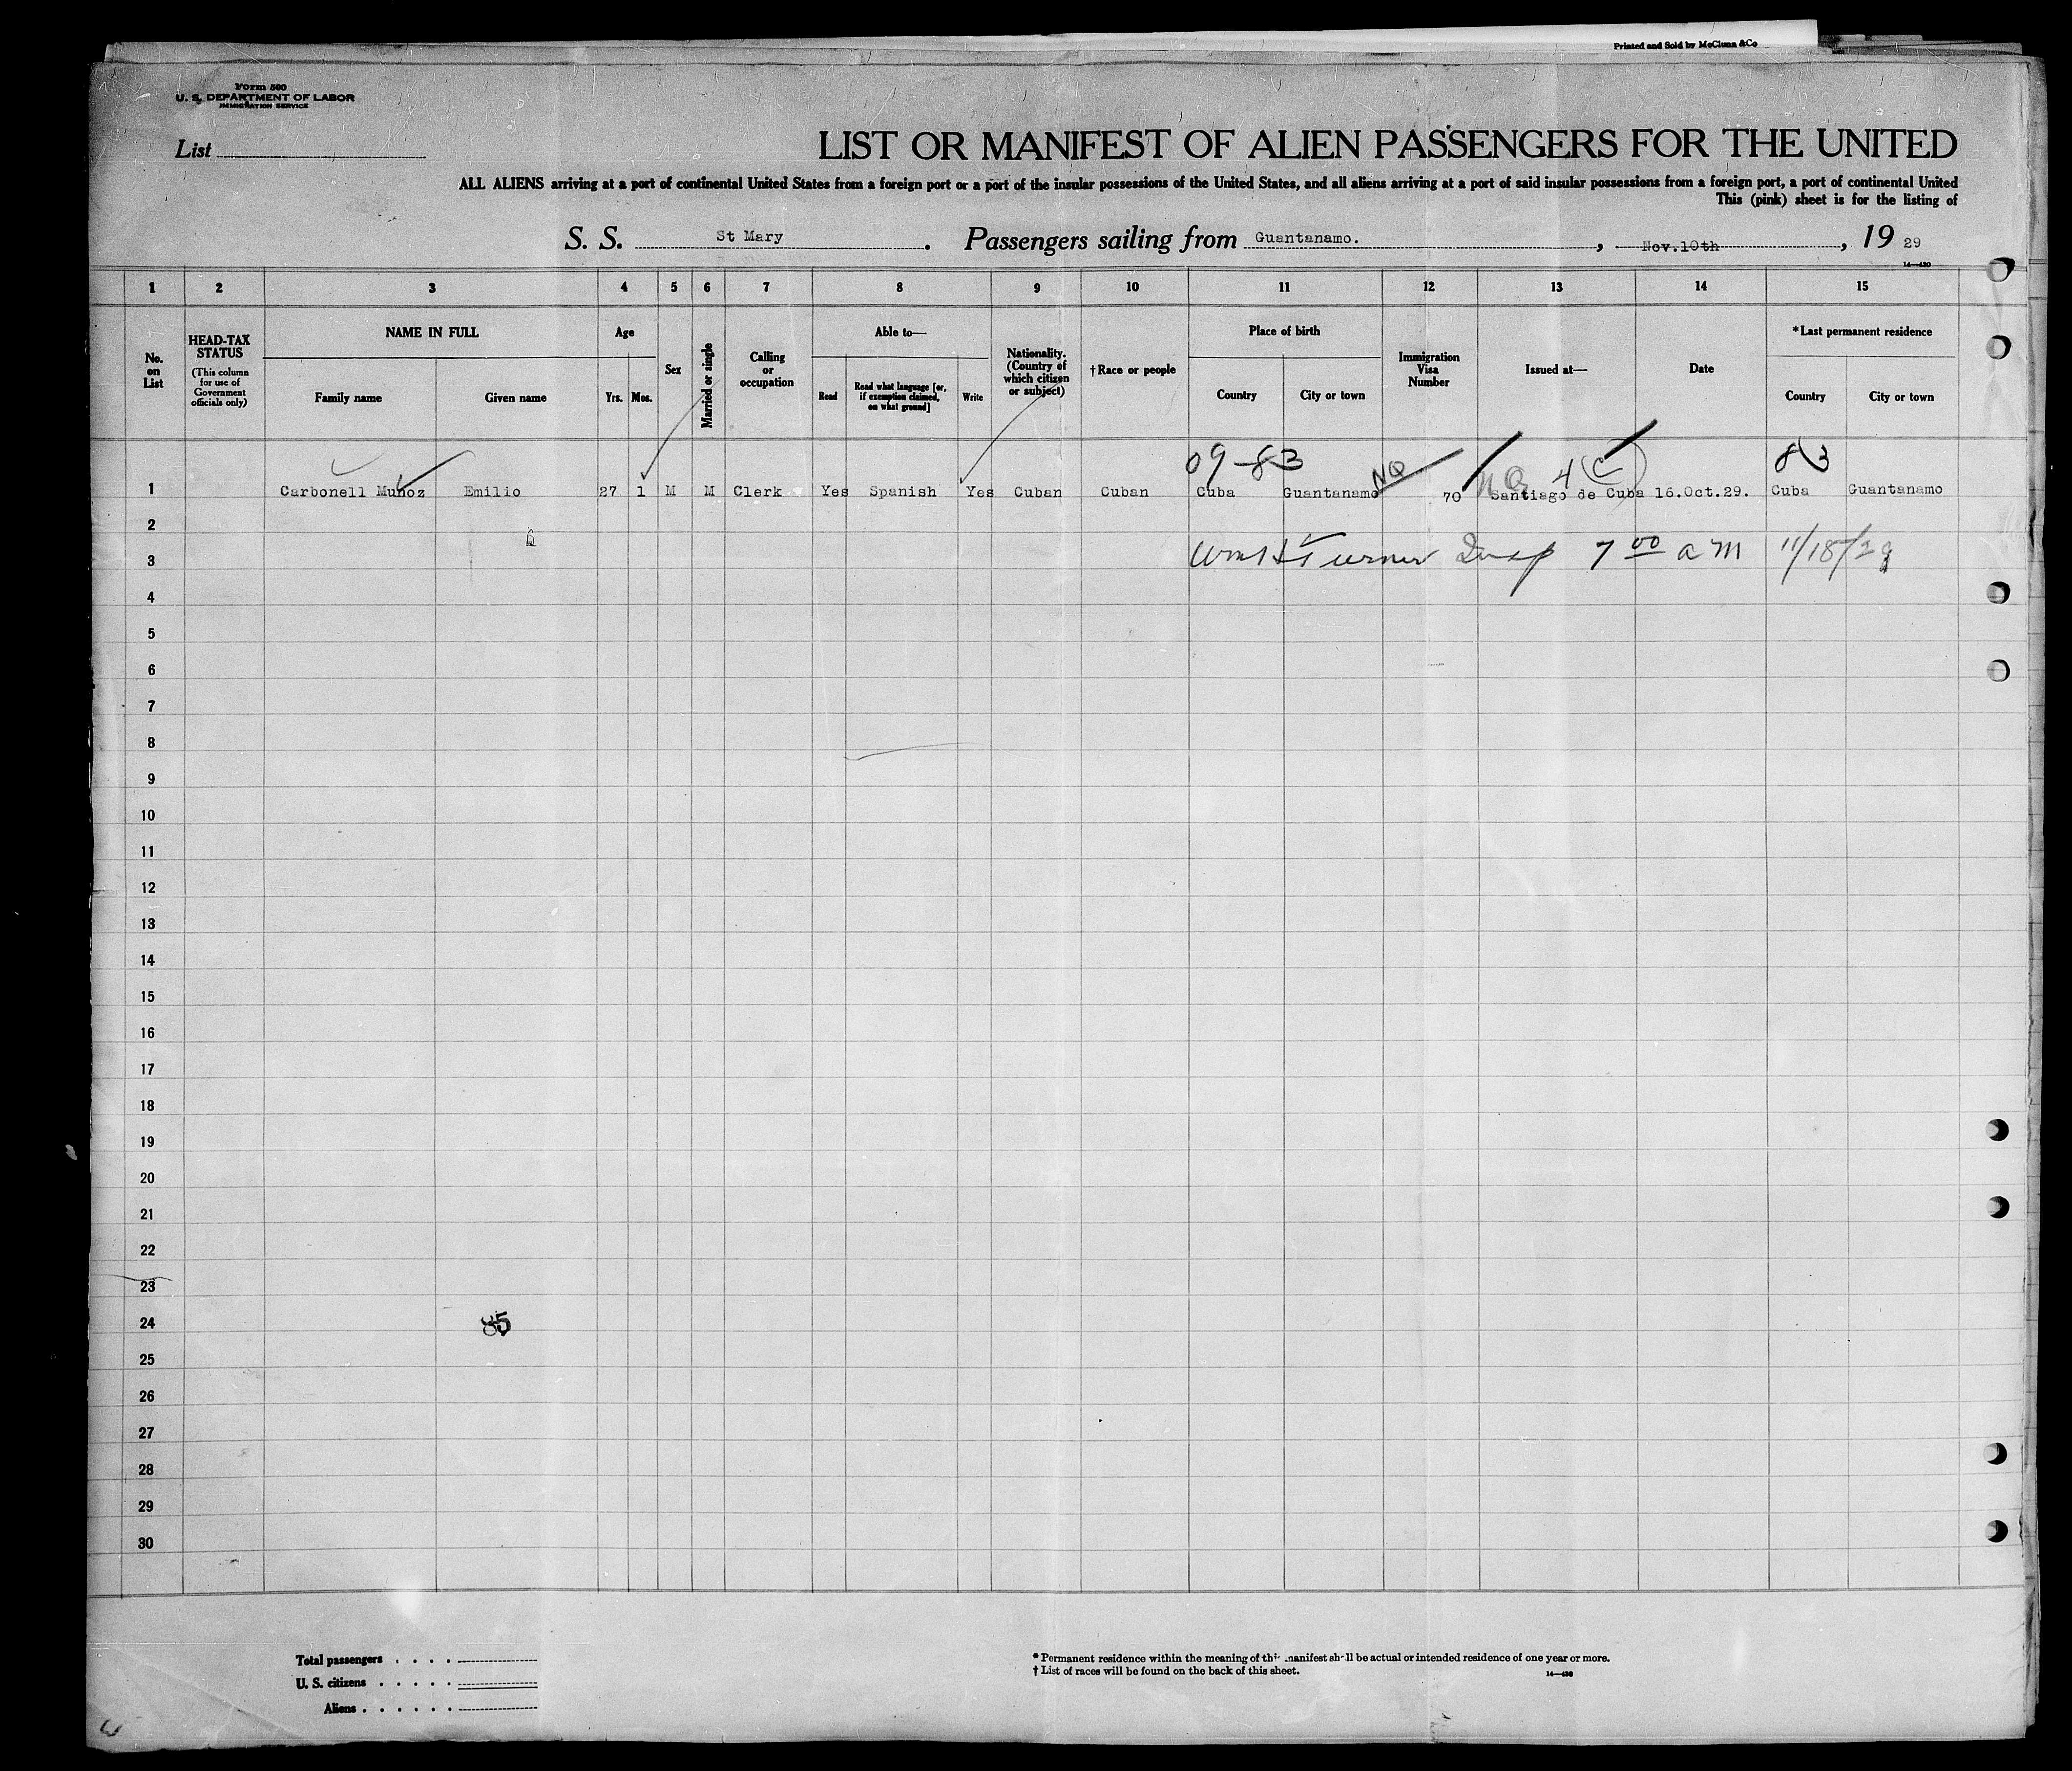 Printed and Sold by McClunn & Co
Form 500
U. S. DEPARTMENT OF LABOR
IMMIGRATION SERVICE
List
LIST OR MANIFEST OF ALIEN PASSENGERS FOR THE UNITED
ALL ALIENS arriving at a port of continental United States from a foreign port or a port of the insular possessions of the United States, and all aliens arriving at a port of said insular possessions from a foreign port, a port of continental United
This (pink) sheet is for the listing of
S. S. St Mary. Passengers sailing from Guantanamo., Nov.10th, 19 29
14—430
1 2 3 4 5 6 7 8 9 10 11 12 13 14 15
No. on List
HEAD-TAX STATUS
(This column for use of Government officials only)
NAME IN FULL
Family name Given name
Age
Yrs. Mos.
Sex
Married or single
Calling or occupation
Able to—
Read Read what language [or, if exemption claimed, on what ground] Write
Nationality. (Country of which citizen or subject)
†Race or people
Place of birth
Country City or town
Immigration Visa Number
Issued at—
Date
*Last permanent residence
Country City or town
09-83 NQ NQ 4 (C) 83
1 Carbonell Muñoz Emilio 27 1 M M Clerk Yes Spanish Yes Cuban Cuban Cuba Guantanamo 70 Santiago de Cuba 16.Oct.29. Cuba Guantanamo
2
3 Wm H Turner Insp 7 00 a m 11/18/29
4
5
6
7
8
9
10
11
12
13
14
15
16
17
18
19
20
21
22
23
24 85
25
26
27
28
29
30
Total passengers . . . .
U. S. citizens . . . . .
Aliens . . . . . .
* Permanent residence within the meaning of this manifest shall be actual or intended residence of one year or more.
† List of races will be found on the back of this sheet.
14—430